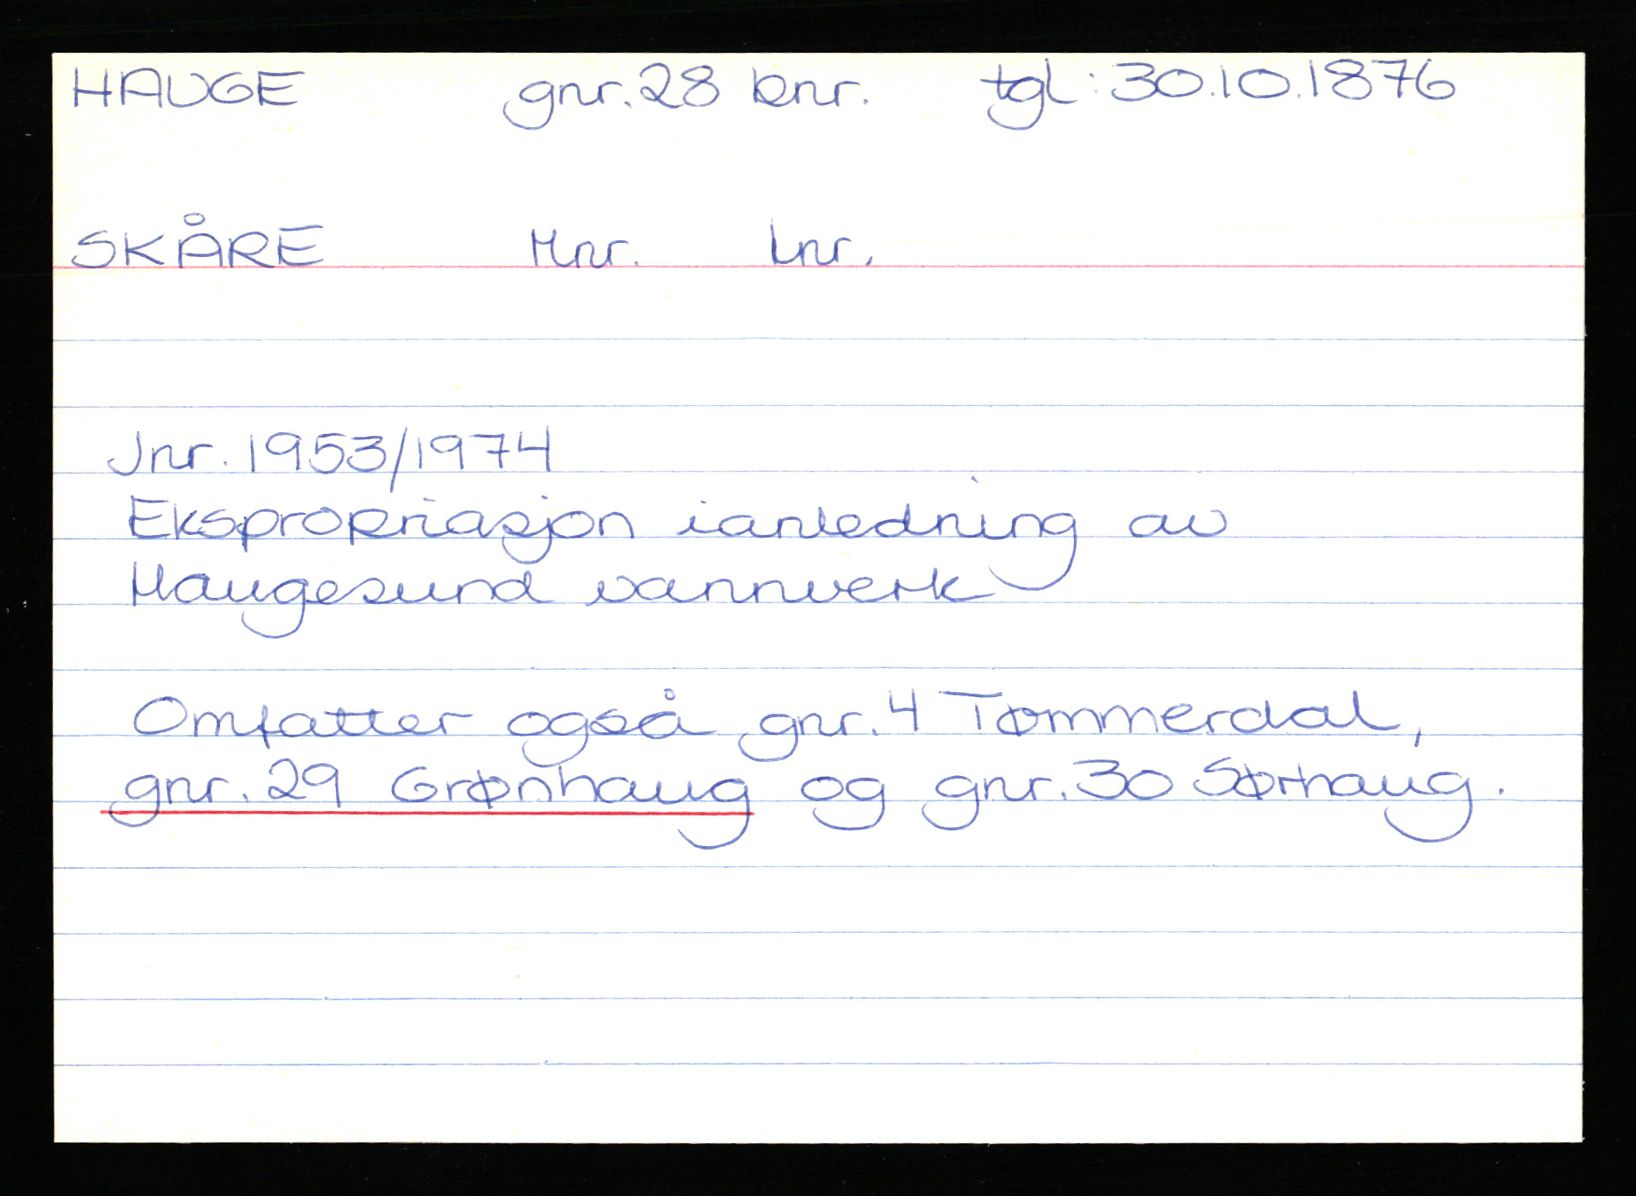 HAUGE gnr. 28 bnr. tgl: 30.10.1876
SKÅRE Mnr. Lnr.
Jnr. 1953/1974
Ekspropriasjon i anledning av
Haugesund vannverk
Omfatter også gnr. 4 Tømmerdal,
gnr. 29 Grønhaug og gnr. 30 Sørhaug.